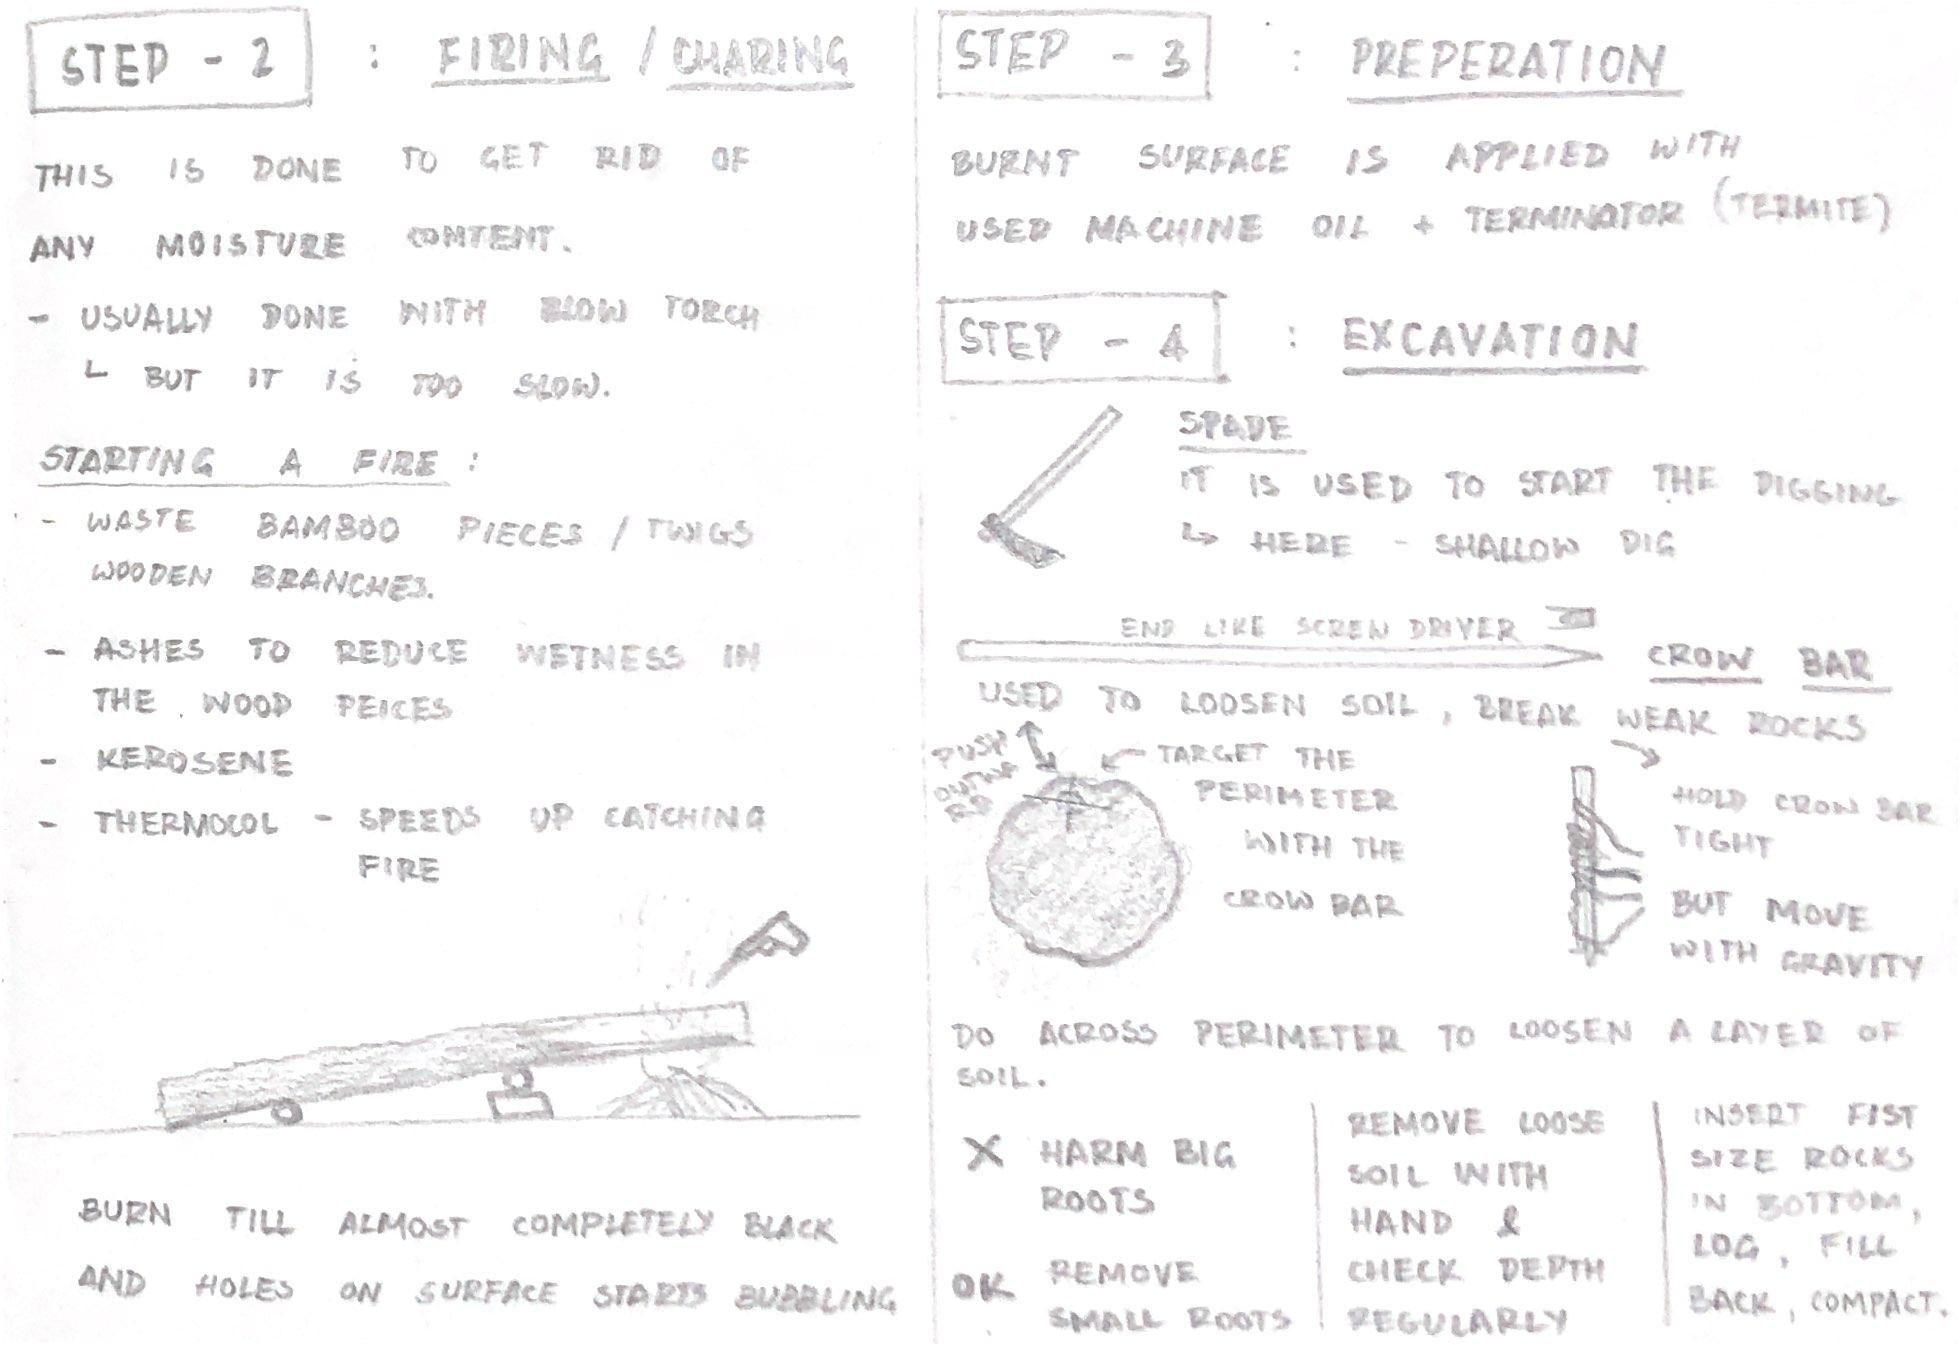 STEP - 2 : FIRING / CHARING
THIS IS DONE TO GET RID OF
ANY MOISTURE CONTENT.
- USUALLY DONE WITH BLOW TORCH
└ BUT IT IS TOO SLOW.
STARTING A FIRE :
- WASTE BAMBOO PIECES / TWIGS
WOODEN BRANCHES.
- ASHES TO REDUCE WETNESS IN
THE WOOD PEICES
- KEROSENE
- THERMOCOL - SPEEDS UP CATCHING
FIRE
BURN TILL ALMOST COMPLETELY BLACK
AND HOLES ON SURFACE STARTS BUBBLING
STEP - 3 : PREPERATION
BURNT SURFACE IS APPLIED WITH
USED MACHINE OIL + TERMINATOR (TERMITE)
STEP - 4 : EXCAVATION
SPADE
IT IS USED TO START THE DIGGING
↳ HERE - SHALLOW DIG
END LIKE SCREW DRIVER
CROW BAR
USED TO LOOSEN SOIL, BREAK WEAK ROCKS
PUSH
OUTWA
RD
TARGET THE
PERIMETER
WITH THE
CROW BAR
HOLD CROW BAR
TIGHT
BUT MOVE
WITH GRAVITY
DO ACROSS PERIMETER TO LOOSEN A LAYER OF
SOIL.
X HARM BIG
ROOTS
OK REMOVE
SMALL ROOTS
REMOVE LOOSE
SOIL WITH
HAND &
CHECK DEPTH
REGULARLY
INSERT FIST
SIZE ROCKS
IN BOTTOM,
LOG, FILL
BACK, COMPACT.